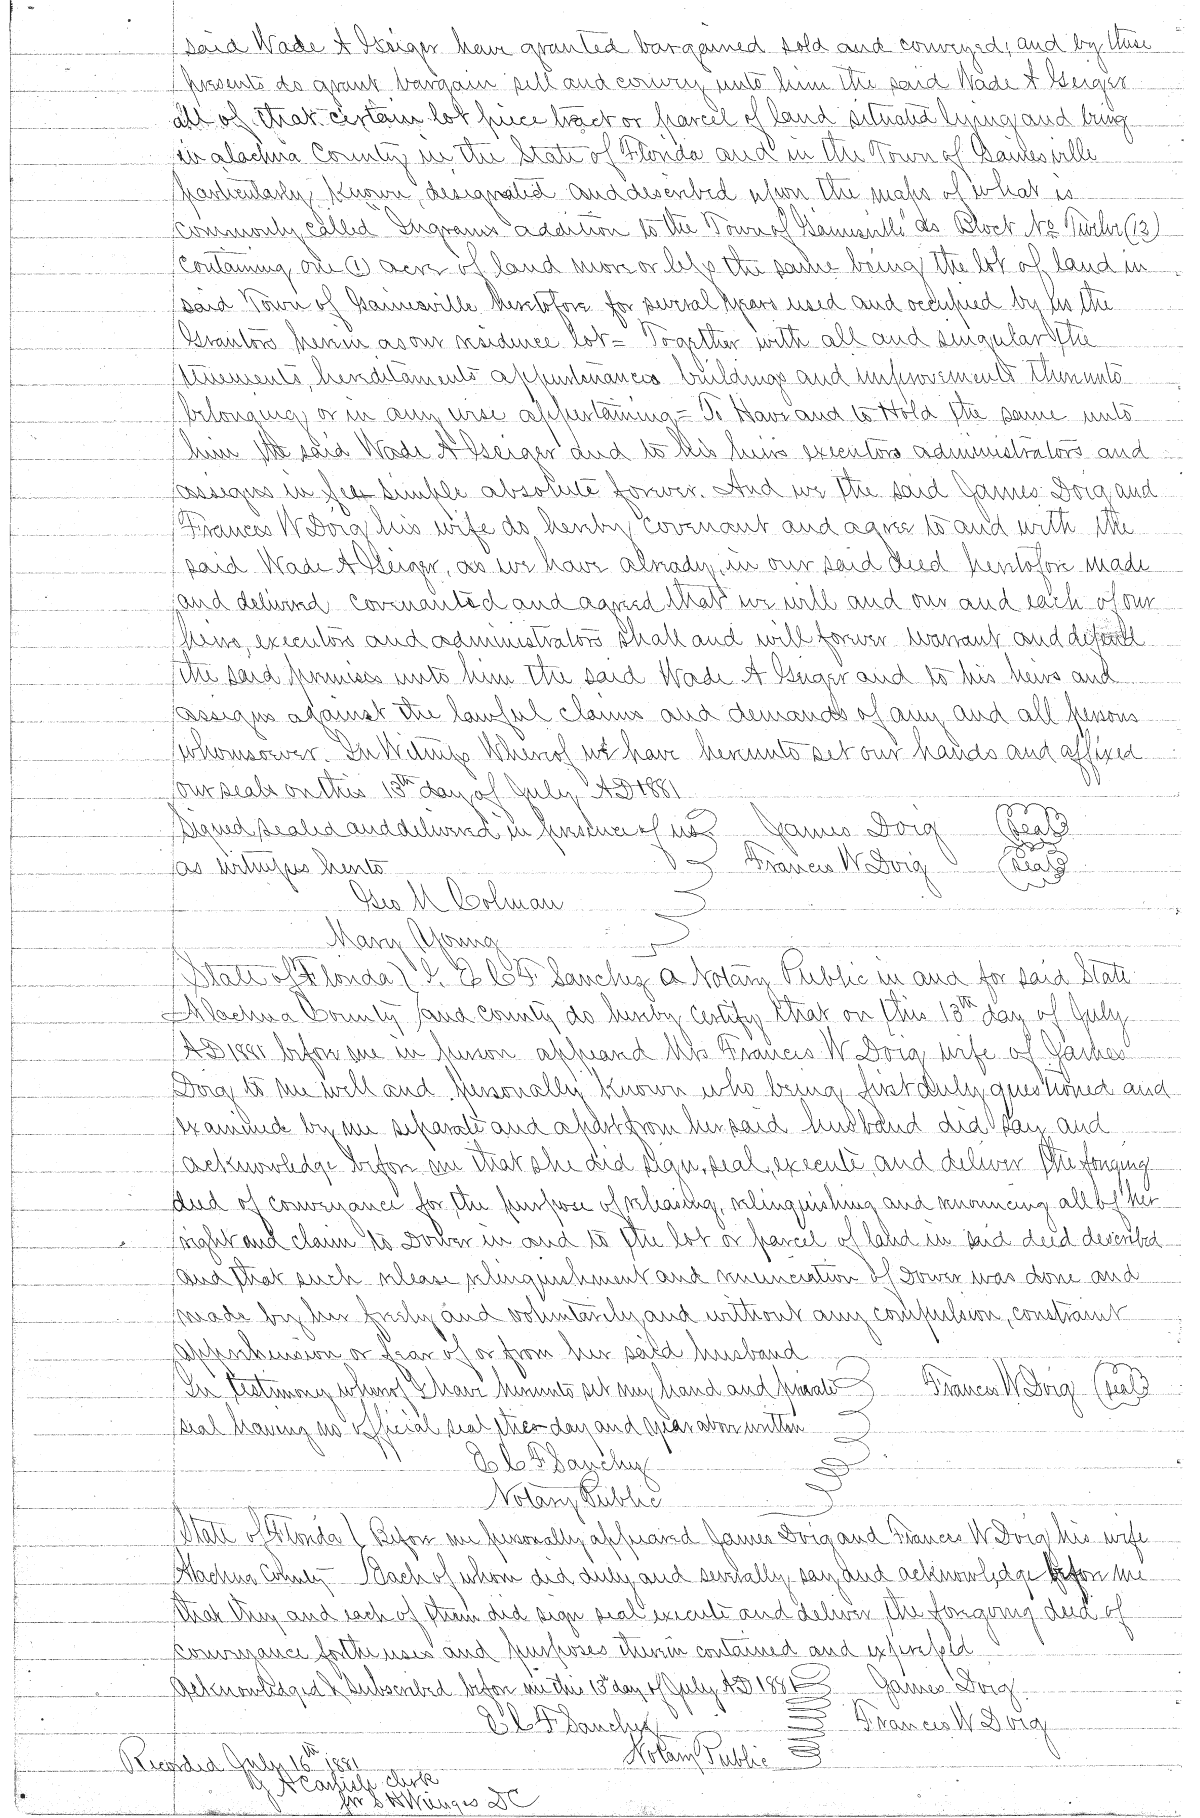 said Wade A Geiger have granted bargained sold and conveyed, and by these
presents do grant bargain sell and convey unto him the said Wade A Geiger
all of that certain lot piece tract or parcel of land situated lying and being
in Alachua County in the State of Florida and in the Town of Gainesville
particularly known designated and described upon the maps of what is
commonly called Ingrams addition to the Town of Gainesville as Block No Twelve (12)
containing one (1) acre of land more or less the same being the lot of land in
said Town of Gainesville heretofore for several years used and occupied by us the
Grantors herein as our residence lot = Together with all and singular the
tenements, hereditaments appurtenances buildings and improvements thereunto
belonging or in any wise appertaining = To Have and to Hold the same unto
him the said Wade A Geiger and to his heirs executors administrators and
assigns in fee simple absolute forever. And we the said James Doig and
Frances W Doig his wife do hereby covenant and agree to and with the
said Wade A Geiger, as we have already, in our said deed heretofore made
and delivered covenanted and agreed that we will and our and each of our
heirs, executors and administrators shall and will forever warrant and defend
the said premises unto him the said Wade A Geiger and to his heirs and
assigns against the lawful claims and demands of any and all persons
whomsoever. In Witness Whereof we have hereunto set our hands and affixed
our seals on this 13th day of July AD 1881
Signed sealed and delivered in presence of us James Doig (Seal)
as witness hereto Frances W Doig (Seal)
Geo M Colman
Mary Young
State of Florida ) I, E C F Sanchez a Notary Public in and for said State
Alachua County and county do hereby certify that on this 13th day of July
AD 1881 before me in person appeard Mrs Frances W Doig wife of James
Doig to me well and personally known who being first duly questioned and
examined by me separate and apart from her said husband did say and
acknowledge before me that she did sign, seal, execute, and deliver the forging
deed of conveyance for the purpose of releasing, relinquishing and renouncing all of her
right and claim to Dower in and to the lot or parcel of land in said deed described
and that such release relinquishment and renunciation of Dower was done and
made by her freely and voluntarily and without any compulsion, constraint
apprehension or fear of or from her said husband
In testimony whereof I have hereunto set my hand and private Frances W Doig (seal)
seal having no official seal the day and year above written
E C F Sanchez
Notary Public
State of Florida ( Before me personally appeared James Doig and Frances W Doig his wife
Alachua County Each of whom did duly and severally say and acknowledge before me
that they and each of them did sign seal execute and deliver the foregoing deed of
conveyance for the uses and purposes therein contained and expressed
Acknowledged & Subscribed before me this 13th day of July AD 1881 James Doig
E C F Sanchez Frances W Doig
Notary Public
Recorded July 16th 1881
J A Carlisle clerk
DC